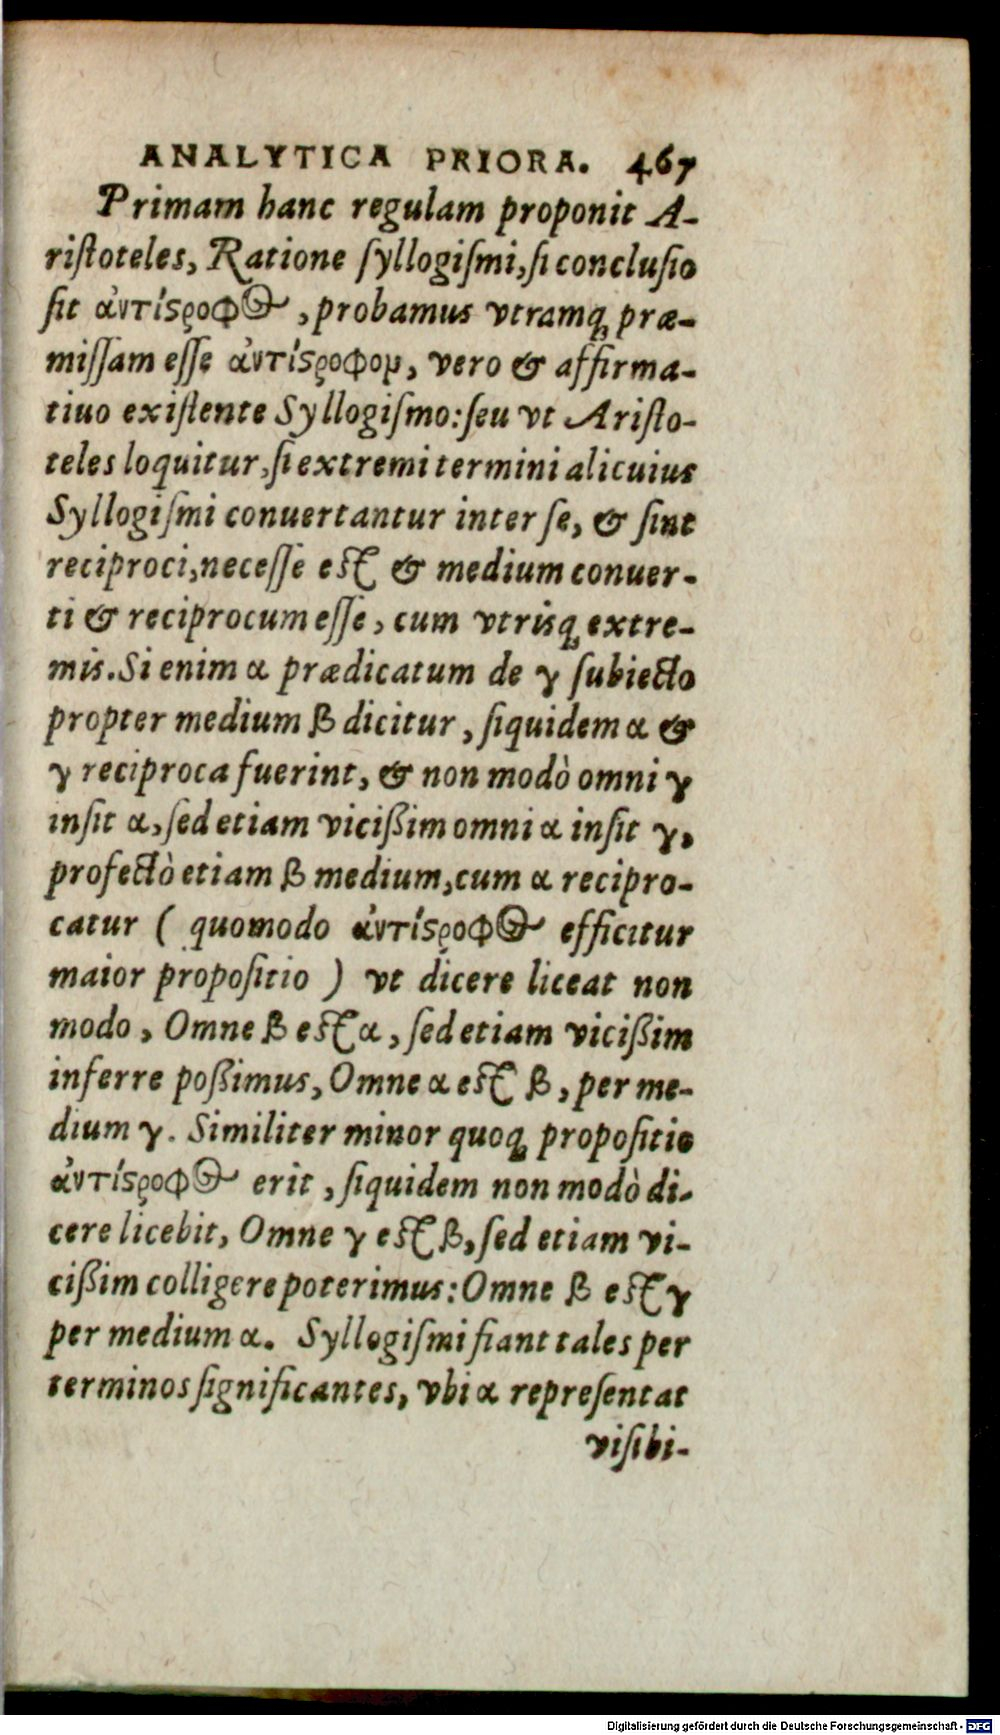 ANALYTICA PRIORA. 467
Primam hanc regulam proponit A-
ristoteles, Ratione syllogismi, si conclusio
sit ἀντίϛροφος, probamus vtramq; præ-
missam esse ἀντίϛροφον, vero & affirma-
tiuo existente Syllogismo: seu vt Aristo-
teles loquitur, si extremi termini alicuius
Syllogismi conuertantur inter se, & sint
reciproci, necesse est & medium conuer-
ti & reciprocum esse, cum vtrisq; extre-
mis. Si enim α prædicatum de γ subiecto
propter medium β dicitur, siquidem α &
γ reciproca fuerint, & non modò omni γ
insit α, sed etiam vicißim omni α insit γ,
profectò etiam β medium, cum α recipro-
catur ( quomodo ἀντίϛροφος efficitur
maior propositio ) vt dicere liceat non
modo, Omne β est α, sed etiam vicißim
inferre poßimus, Omne α est β, per me-
dium γ. Similiter minor quoq; propositio
ἀντίϛροφος erit, siquidem non modò di-
cere licebit, Omne γ est β, sed etiam vi-
cißim colligere poterimus: Omne β est γ
per medium α. Syllogismi fiant tales per
terminos significantes, vbi α representat
visibi-
Digitalisierung gefördert durch die Deutsche Forschungsgemeinschaft - DFG